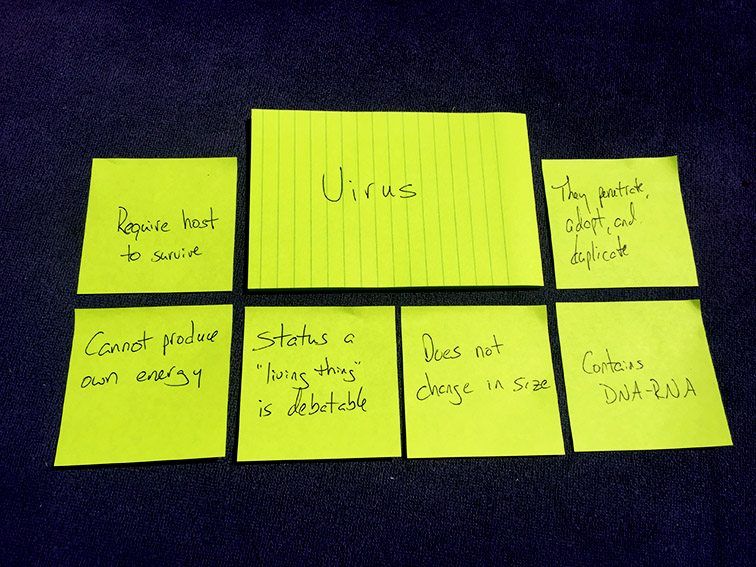 Virus
Require host
to survive
They penetrate,
adapt, and
duplicate
Cannot produce
own energy
Status a
"living thing"
is debatable
Does not
change in size
Contains
DNA-RNA